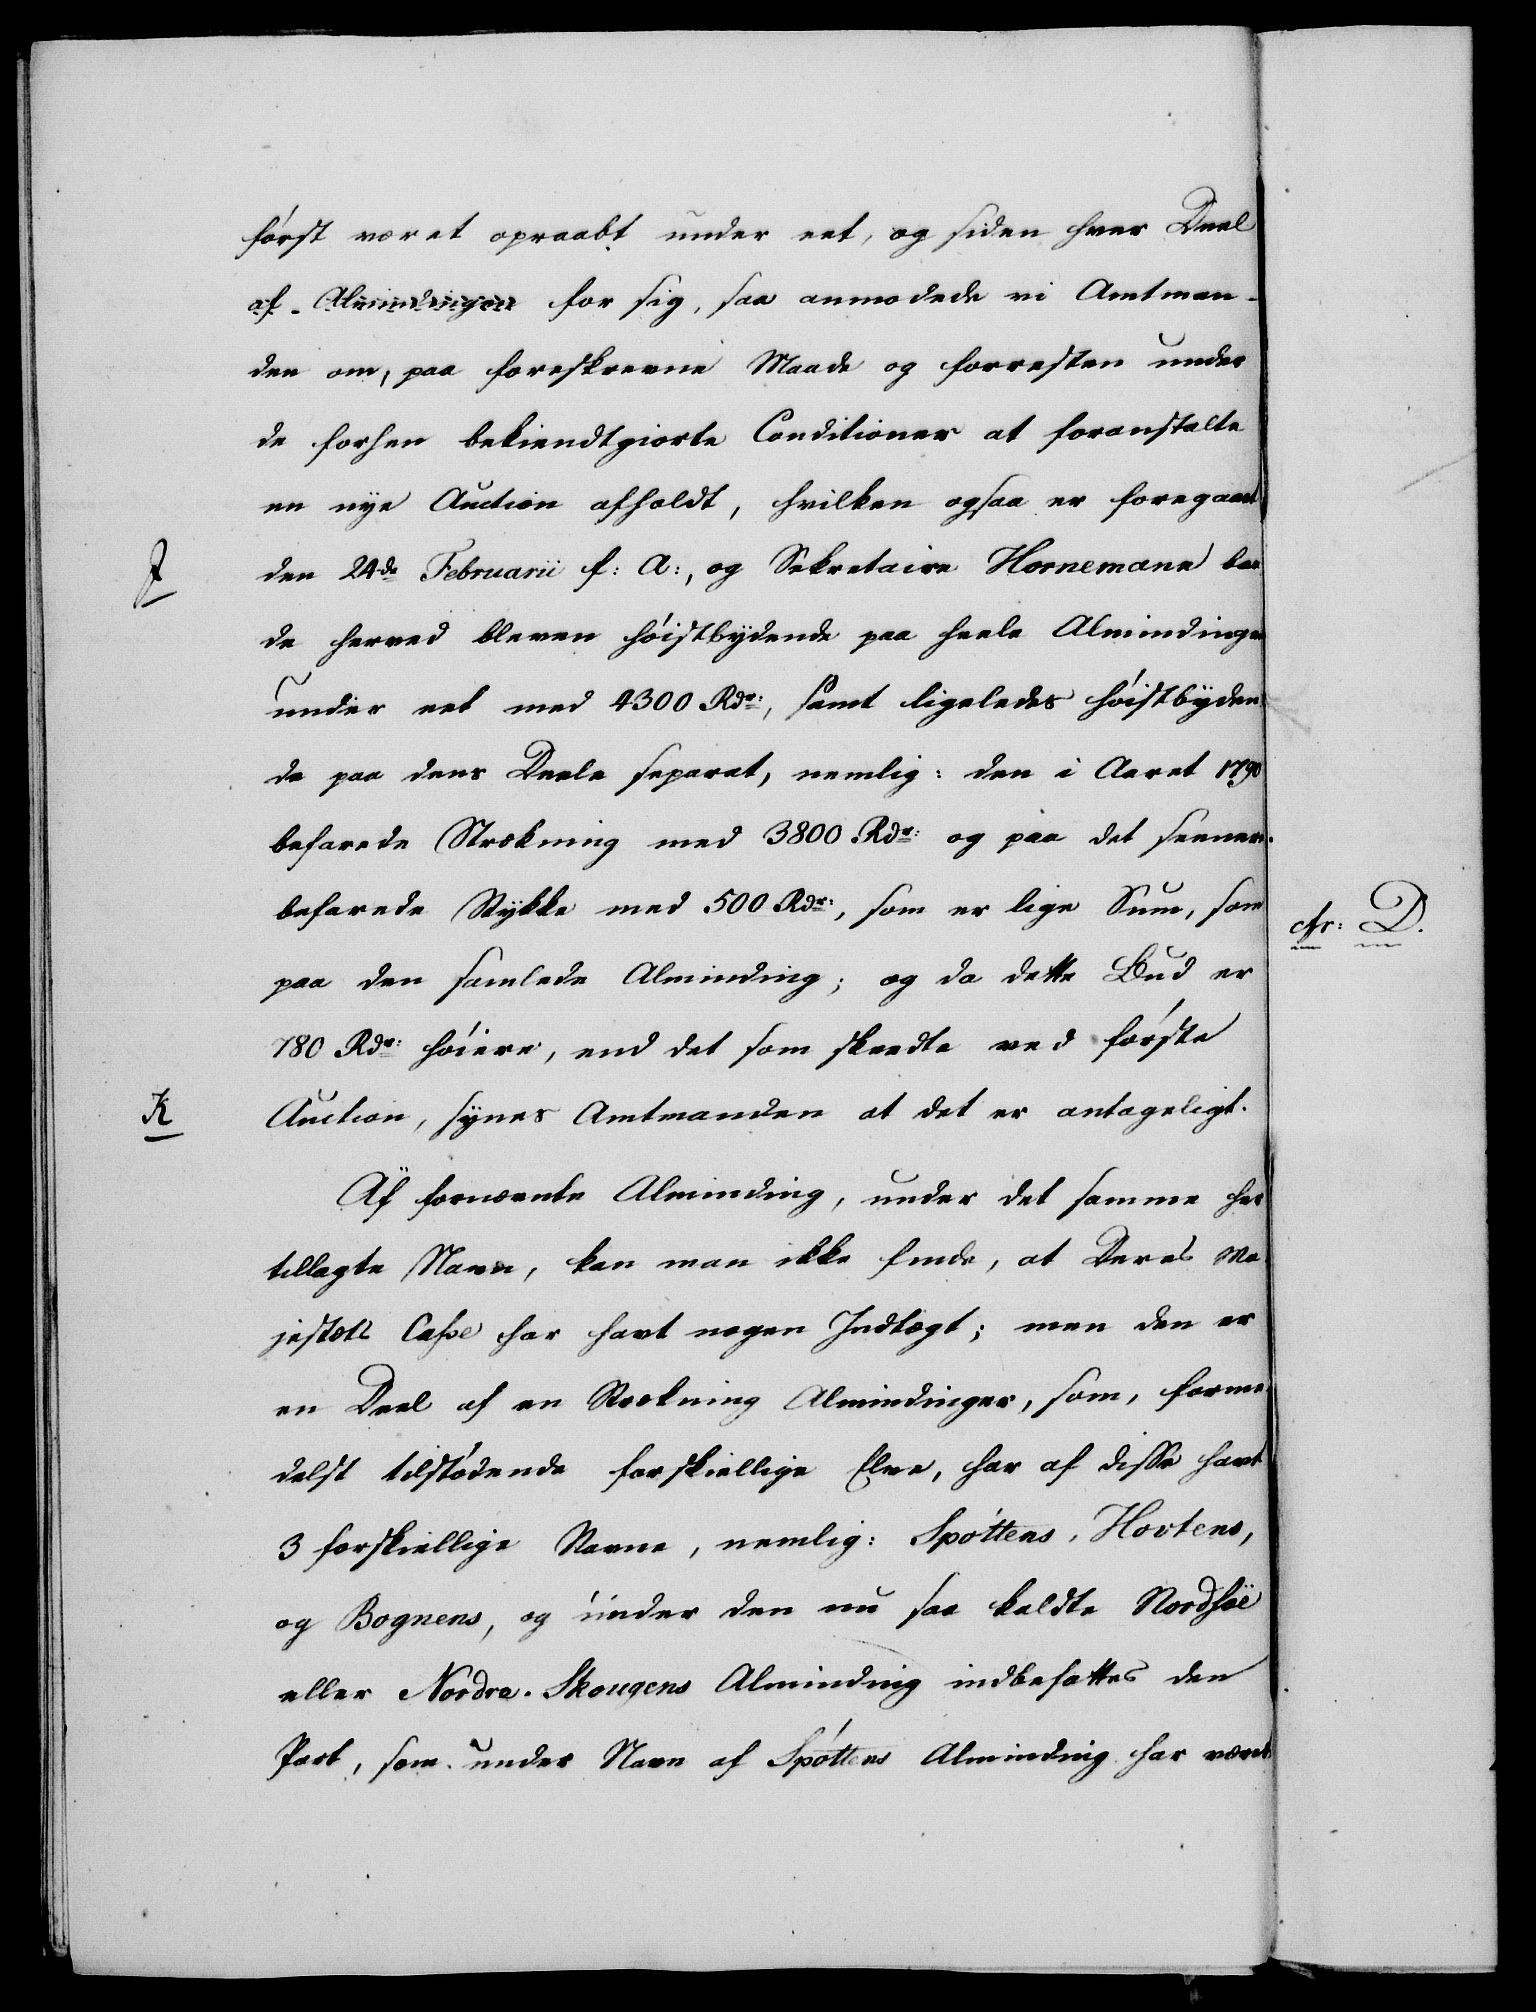 først været opraabt under eet, og siden hver Deel
af Almindingen for sig, saa anmodede vi Amtman-
den om, paa foreskrevne Maade og forresten under
de forhen bekiendtgiorte Conditioner at foranstalte
en nye Auction afholdt, hvilken ogsaa er foregaaet
J
den 24de Februarii f: A:, og Sekretaire Hornemann
de herved bleven høistbydende paa heele Almindingen
under eet med 4300 Rdr:, samt ligeledes høistbyden
de paa dens Deele separat, nemlig: den i Aaret 1790
befarede Strækning med 3800 Rdr: og paa det seenere
befarede Stykke med 500 Rdr:, som er lige Sum, som
cfr: D.
paa den samlede Alminding; og da dette Bud er
780 Rdr: høiere, end det som skeedte ved første
K
Auction, synes Amtmanden at det er antageligt.
Af fornævnte Alminding, under det samme her
tillagte Navn, kan man ikke finde, at Deres Ma
jestæts Casse har havt nogen Indtægt; men den er
en Deel af en Strækning Almindinger, som, forme
delst tilstødende forskiellige Elve, har af disse havt
3 forskiellige Navne, nemlig: Spøttens, Hovtens,
og Bognens, og under den nu saa kaldte Nordhøe
eller Nordre-Skougens Alminding indbefattes den
Part, som under Navn af Spøttens Alminding har været